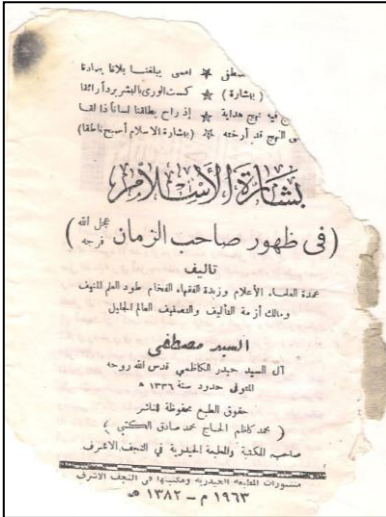 مصطفى ★ اضحى يبلغنا بلاغا صادقا
( بشارة ) ★ كست الورى بالبشر بردا رائقا
فيه نهج هداية ★ إذ راح يطلقنا لساناً ذالقا
النهج قد أرخته ★ (بشارة الاسلام أصبح ناطقا)
بشارة الأسلام
(في ظهور صاحب الزمان عجل الله فرجه)
تاليف
عمدة العلماء الأعلام وزبدة الفقهاء الفخام طود العلم المنيف
ومالك أزمة التأليف والتصنيف العالم الجليل
السيد مصطفى
آل السيد حيدر الكاظمي قدس الله روحه
المتوفى حدود سنة ١٣٣٦ ه
حقوق الطبع محفوظة للناشر
( محمد كاظم الحاج محمد صادق الكتبي )
صاحب المكتبة والمطبعة الحيدرية في النجف الاشرف
منشورات المطبعة الحيدرية ومكتبتها في النجف الاشرف
١٩٦٣ م – ١٣٨٢ هـ